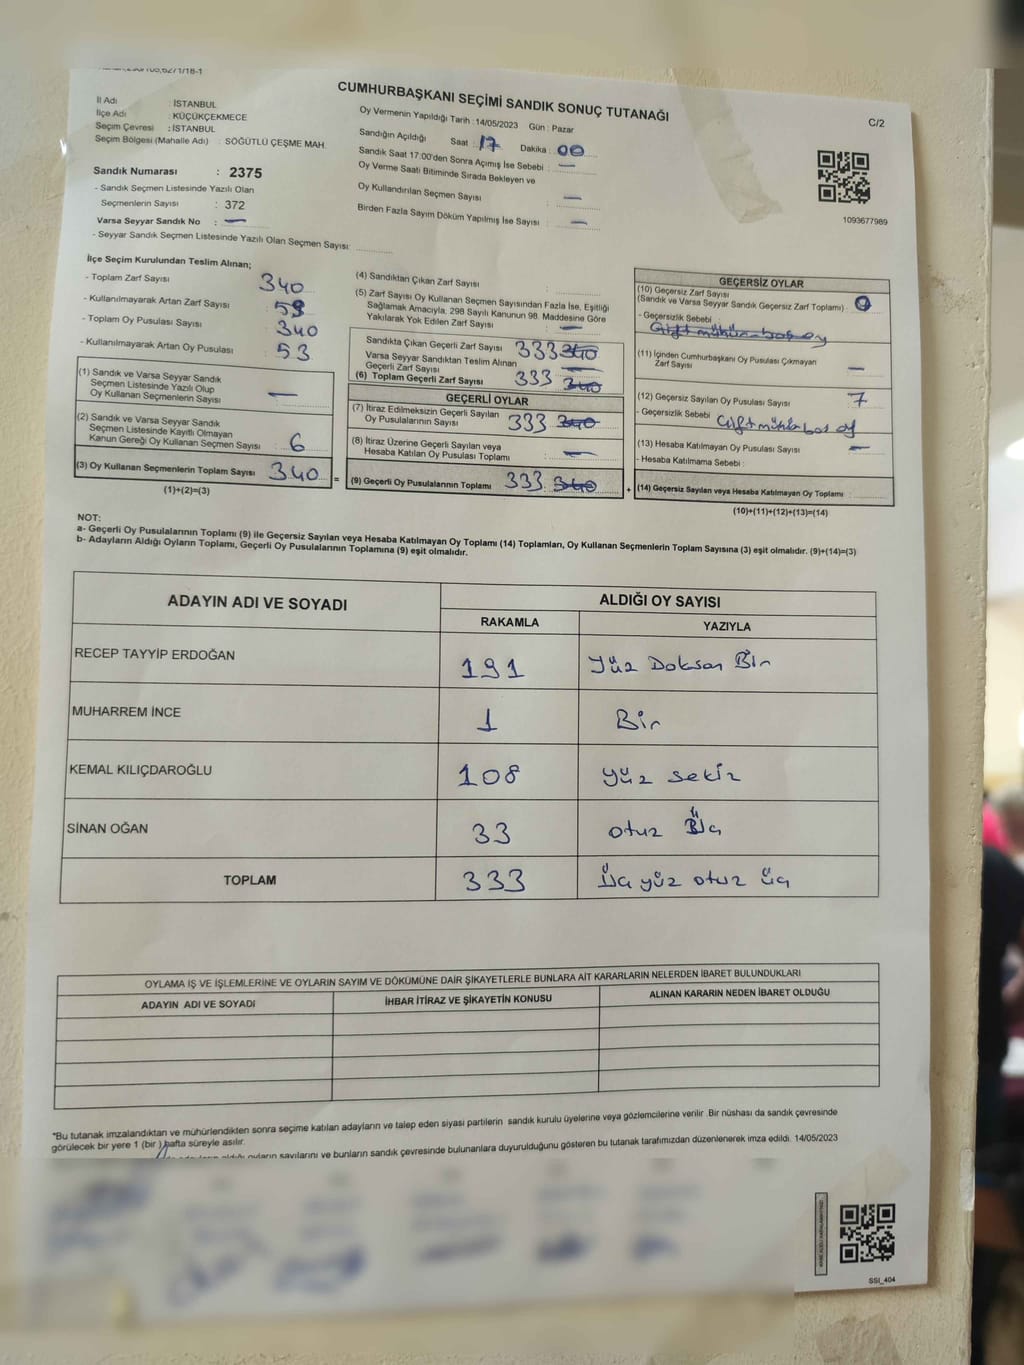 CUMHURBAŞKANI SEÇİMİ SANDIK SONUÇ TUTANAĞI
C/2
İl Adı : İSTANBUL
İlçe Adı : KÜÇÜKÇEKMECE
Seçim Çevresi : İSTANBUL
Seçim Bölgesi (Mahalle Adı) : SÖĞÜTLÜ ÇEŞME MAH.
Sandık Numarası : 2375
- Sandık Seçmen Listesinde Yazılı Olan
Seçmenlerin Sayısı : 372
Varsa Seyyar Sandık No : —
- Seyyar Sandık Seçmen Listesinde Yazılı Olan Seçmen Sayısı:
Oy Vermenin Yapıldığı Tarih : 14/05/2023 Gün : Pazar
Sandığın Açıldığı Saat : 17 Dakika : 00
Sandık Saat 17:00'den Sonra Açımış İse Sebebi : —
Oy Verme Saati Bitiminde Sırada Bekleyen ve
Oy Kullandırılan Seçmen Sayısı : —
Birden Fazla Sayım Döküm Yapılmış İse Sayısı : —
1093677989
İlçe Seçim Kurulundan Teslim Alınan;
- Toplam Zarf Sayısı : 340
- Kullanılmayarak Artan Zarf Sayısı :
- Toplam Oy Pusulası Sayısı : 340
- Kullanılmayarak Artan Oy Pusulası : 53
(1) Sandık ve Varsa Seyyar Sandık
Seçmen Listesinde Yazılı Olup
Oy Kullanan Seçmenlerin Sayısı : —
(2) Sandık ve Varsa Seyyar Sandık
Seçmen Listesinde Kayıtlı Olmayan
Kanun Gereği Oy Kullanan Seçmen Sayısı : 6
(3) Oy Kullanan Seçmenlerin Toplam Sayısı : 340
(1)+(2)=(3)
(4) Sandıktan Çıkan Zarf Sayısı :
(5) Zarf Sayısı Oy Kullanan Seçmen Sayısından Fazla İse, Eşitliği
Sağlamak Amacıyla, 298 Sayılı Kanunun 98. Maddesine Göre
Yakılarak Yok Edilen Zarf Sayısı : —
Sandıkta Çıkan Geçerli Zarf Sayısı : 333 340
Varsa Seyyar Sandıktan Teslim Alınan
Geçerli Zarf Sayısı : —
(6) Toplam Geçerli Zarf Sayısı : 333 340
GEÇERLİ OYLAR
(7) İtiraz Edilmeksizin Geçerli Sayılan
Oy Pusulasının Sayısı : 333 340
(8) İtiraz Üzerine Geçerli Sayılan veya
Hesaba Katılan Oy Pusulası Toplamı : —
= (9) Geçerli Oy Pusulalarının Toplamı : 333 340
GEÇERSİZ OYLAR
(10) Geçersiz Zarf Sayısı
(Sandık ve Varsa Seyyar Sandık Geçersiz Zarf Toplamı) :
- Geçersizlik Sebebi :
Çift mühür boş oy
(11) İçinden Cumhurbaşkanı Oy Pusulası Çıkmayan
Zarf Sayısı : —
(12) Geçersiz Sayılan Oy Pusulası Sayısı : 7
- Geçersizlik Sebebi : Çift mühür boş oy
(13) Hesaba Katılmayan Oy Pusulası Sayısı : —
- Hesaba Katılmama Sebebi :
+ (14) Geçersiz Sayılan veya Hesaba Katılmayan Oy Toplamı :
(10)+(11)+(12)+(13)=(14)
NOT:
a- Geçerli Oy Pusulalarının Toplamı (9) ile Geçersiz Sayılan veya Hesaba Katılmayan Oy Toplamı (14) Toplamları, Oy Kullanan Seçmenlerin Toplam Sayısına (3) eşit olmalıdır. (9)+(14)=(3)
b- Adayların Aldığı Oyların Toplamı, Geçerli Oy Pusulalarının Toplamına (9) eşit olmalıdır.
ADAYIN ADI VE SOYADI ALDIĞI OY SAYISI
RAKAMLA YAZIYLA
RECEP TAYYİP ERDOĞAN 191 Yüz Doksan Bir
MUHARREM İNCE 1 Bir
KEMAL KILIÇDAROĞLU 108 Yüz sekiz
SİNAN OĞAN 33 otuz Üç
TOPLAM 333 Üç yüz otuz üç
OYLAMA İŞ VE İŞLEMLERİNE VE OYLARIN SAYIM VE DÖKÜMÜNE DAİR ŞİKAYETLERLE BUNLARA AİT KARARLARIN NELERDEN İBARET BULUNDUKLARI
ADAYIN ADI VE SOYADI İHBAR İTİRAZ VE ŞİKAYETİN KONUSU ALINAN KARARIN NEDEN İBARET OLDUĞU
*Bu tutanak imzalandıktan ve mühürlendikten sonra seçime katılan adayların ve talep eden siyasi partilerin sandık kurulu üyelerine veya gözlemcilerine verilir .Bir nüshası da sandık çevresinde
görülecek bir yere 1 (bir ) hafta süreyle asılır.
oyların sayılarını ve bunların sandık çevresinde bulunanlara duyurulduğunu gösteren bu tutanak tarafımızdan düzenlenerek imza edildi. 14/05/2023
SSI_404